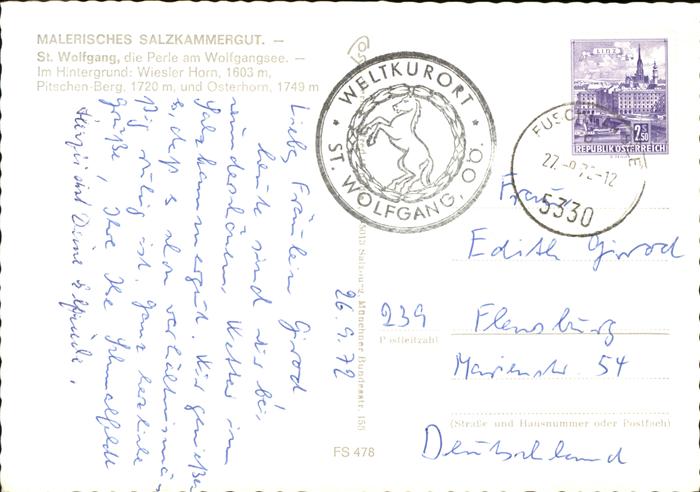 MALERISCHES SALZKAMMERGUT. —
St. Wolfgang, die Perle am Wolfgangsee. —
Im Hintergrund: Wiesler Horn, 1603 m,
Pitschen-Berg, 1720 m, und Osterhorn, 1749 m
WELTKURORT
ST. WOLFGANG, OÖ.
LINZ
2.50
REPUBLIK ÖSTERREICH
FUSCHL
27.-9.72-12
5330
26. 9. 72
Liebes Fräulein Girod
heute sind wir bei
wunderschönem Wetter im
Salzkammergut. Wir genießen
es, daß es schon verhältnismä-
ßig ruhig ist. Ganz herzliche
Grüße, Ihre Schmalfeldt
Frau
Edith Girod
239 Flensburg
Postleitzahl
Marienstr. 54
(Straße und Hausnummer oder Postfach)
Deutschland
5013 Salzburg, Münchner Bundesstr. 155
FS 478